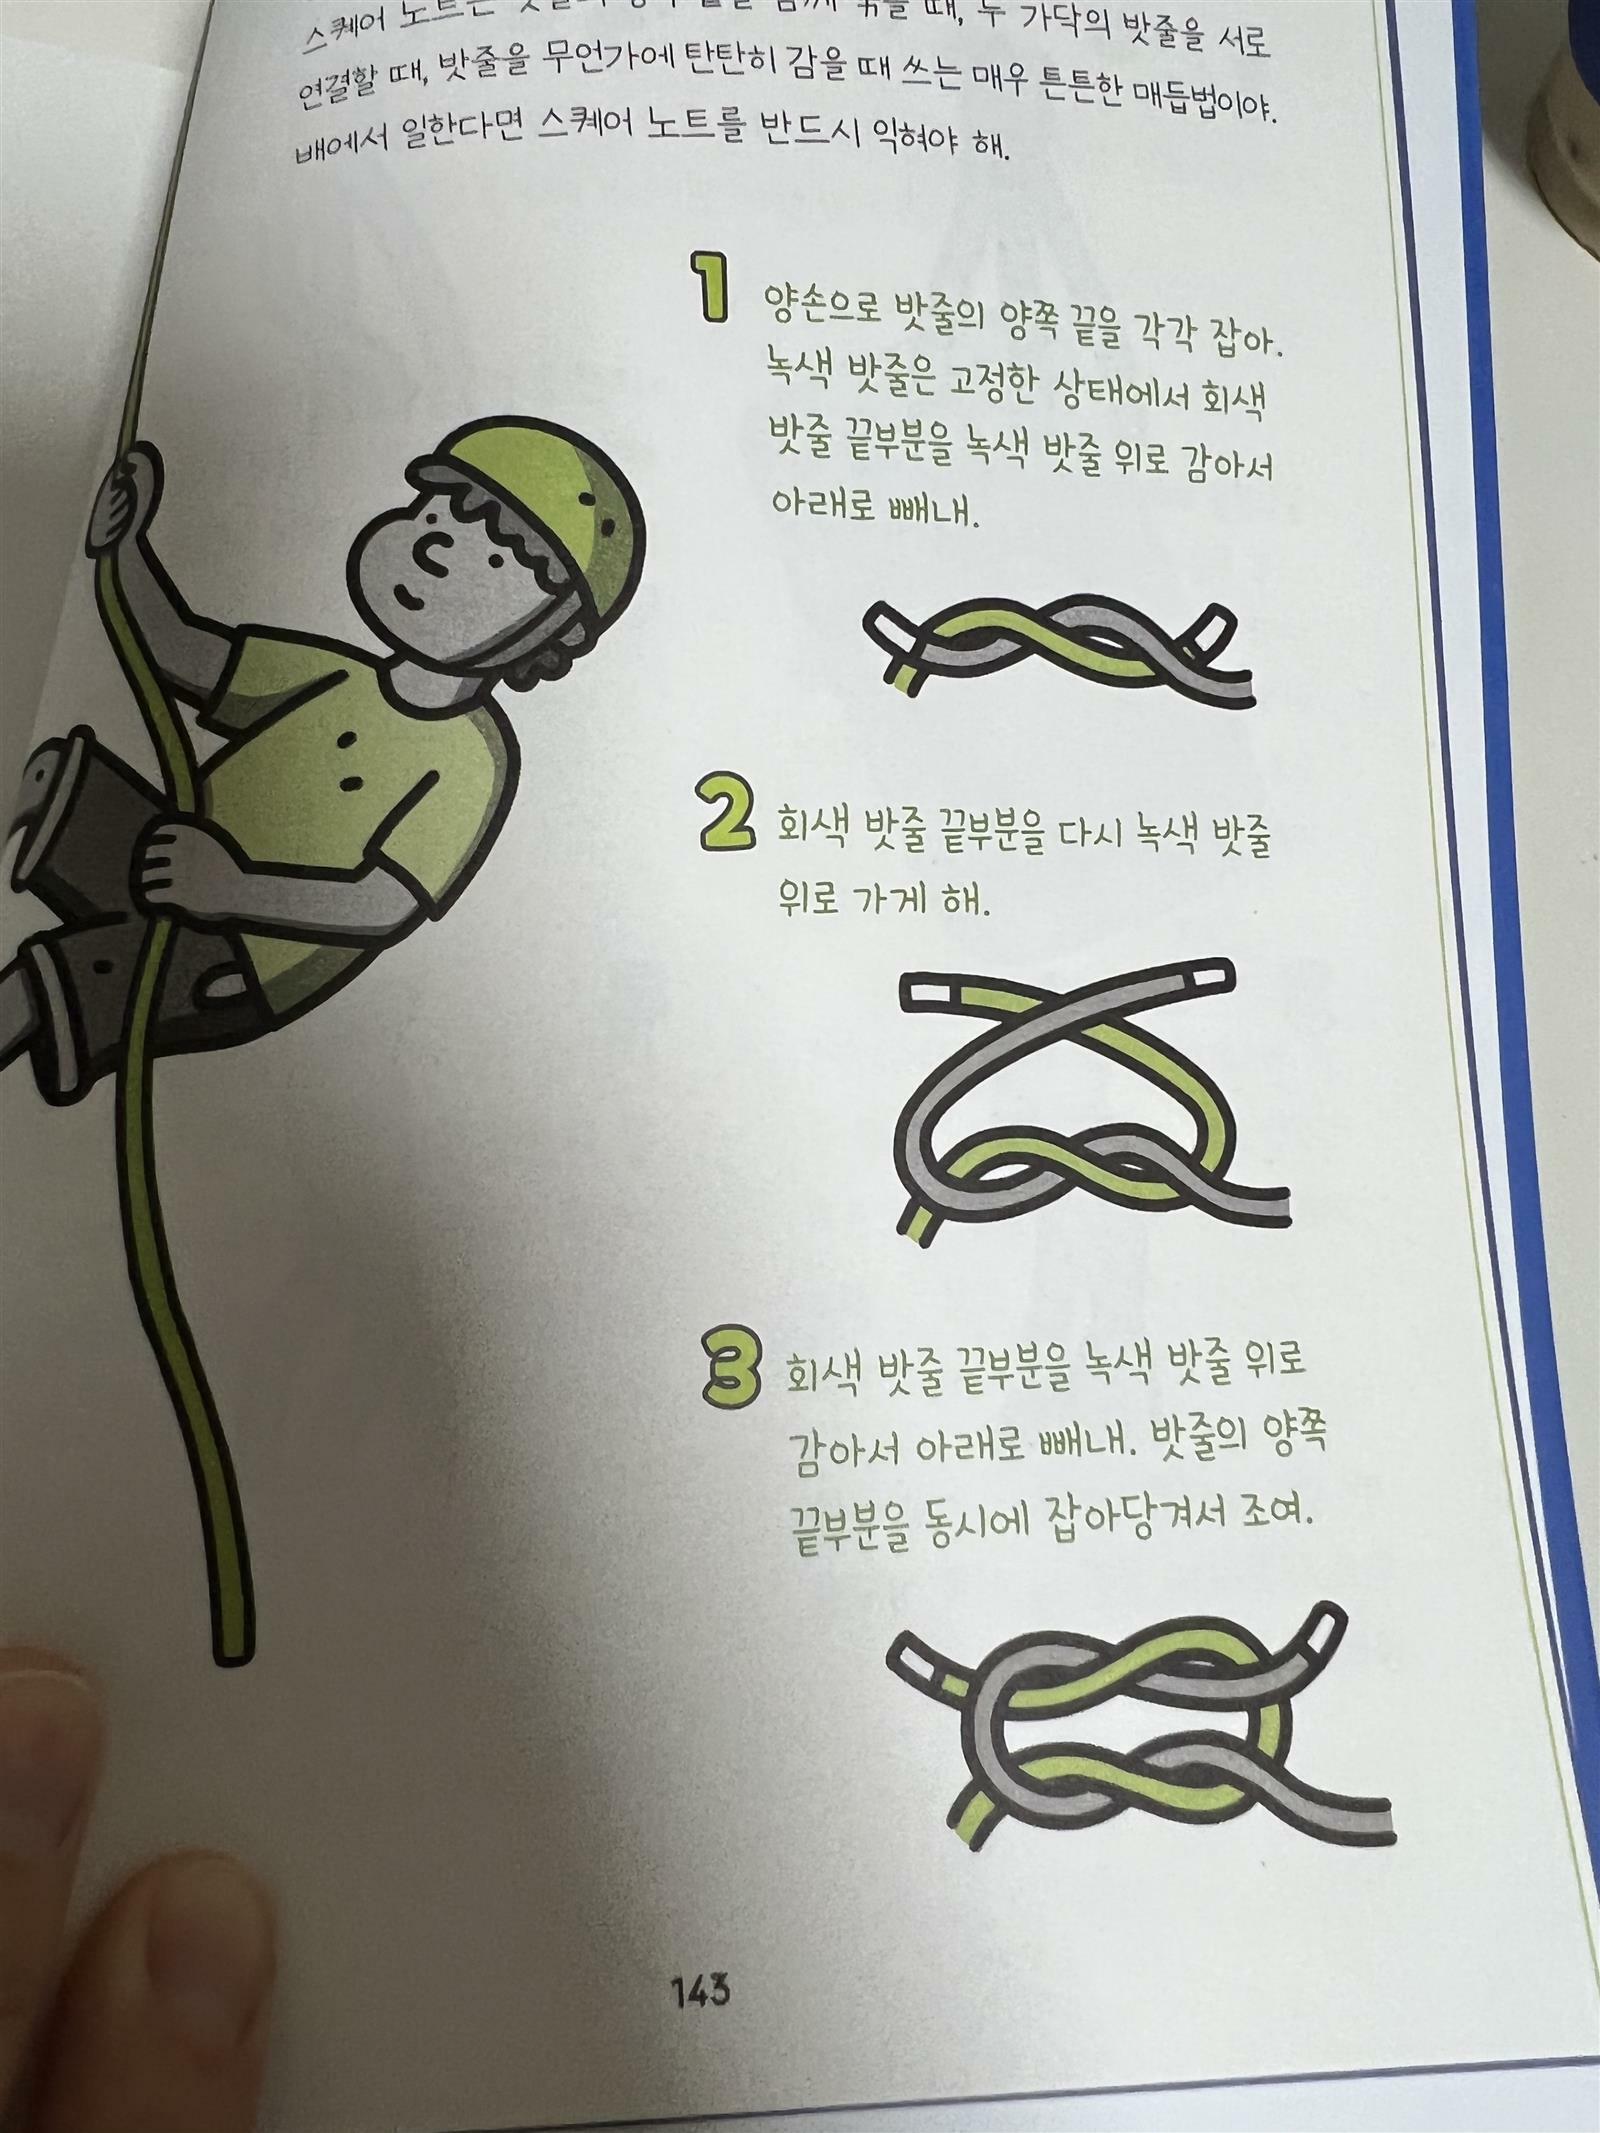 스퀘어 노트는 때, 두 가닥의 밧줄을 서로
연결할 때, 밧줄을 무언가에 탄탄히 감을 때 쓰는 매우 튼튼한 매듭법이야.
배에서 일한다면 스퀘어 노트를 반드시 익혀야 해.
1
양손으로 밧줄의 양쪽 끝을 각각 잡아.
녹색 밧줄은 고정한 상태에서 회색
밧줄 끝부분을 녹색 밧줄 위로 감아서
아래로 빼내.
2
회색 밧줄 끝부분을 다시 녹색 밧줄
위로 가게 해.
3
회색 밧줄 끝부분을 녹색 밧줄 위로
감아서 아래로 빼내. 밧줄의 양쪽
끝부분을 동시에 잡아당겨서 조여.
143